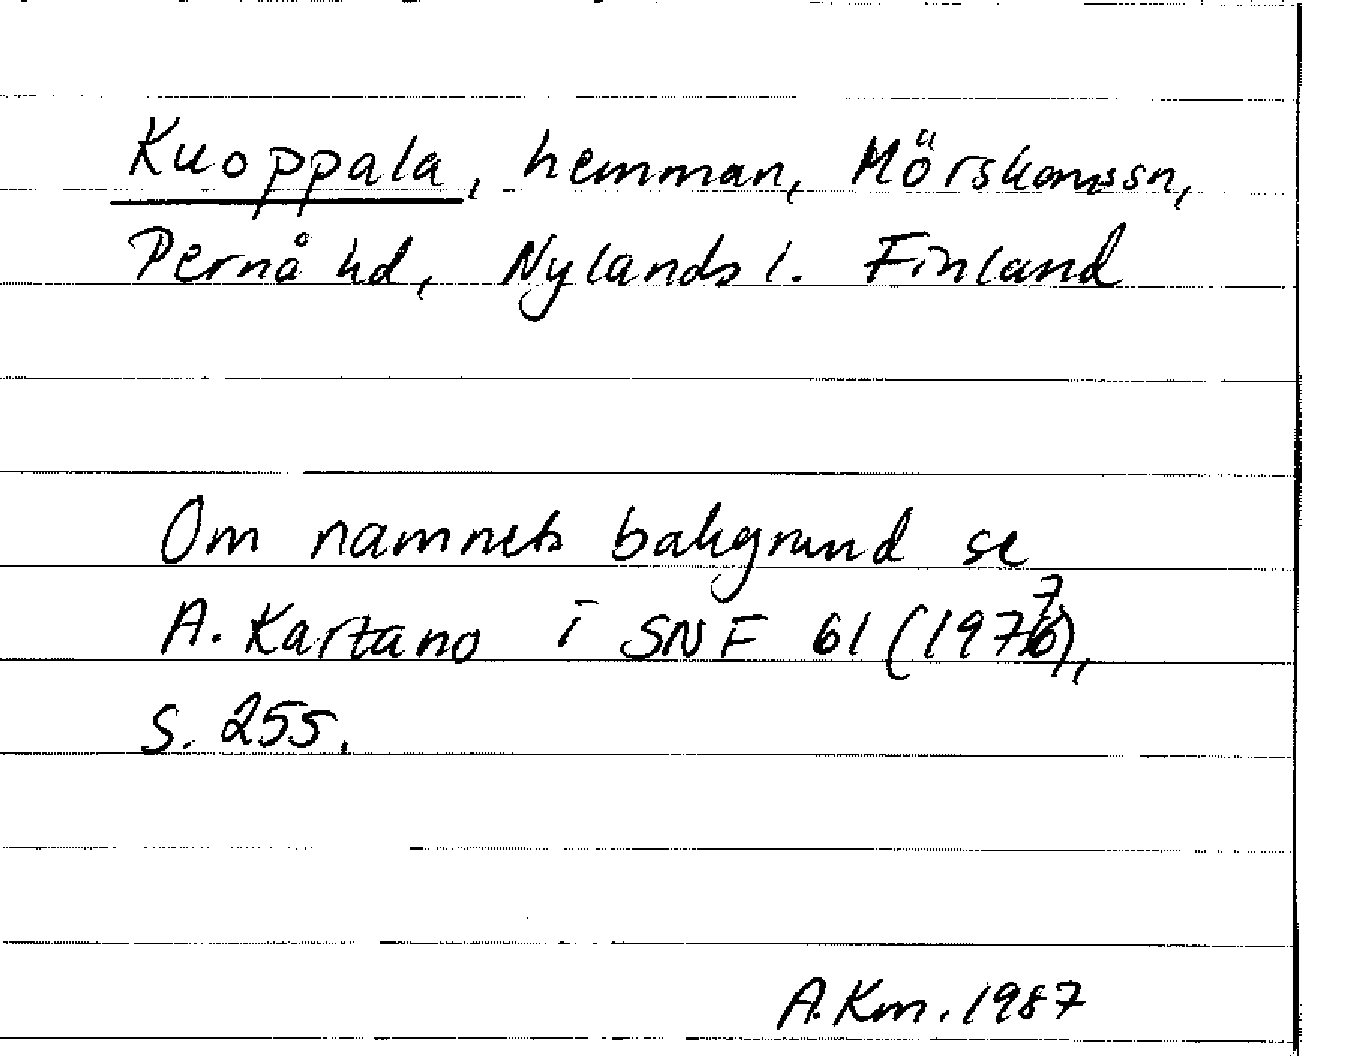 Kuoppala, hemman, Mörskomssn,
Pernå hd, Nylands l. Finland
Om namnets bakgrund se
A. Kartano i SNF 61 (1977),
S. 255.
A.Km. 1987